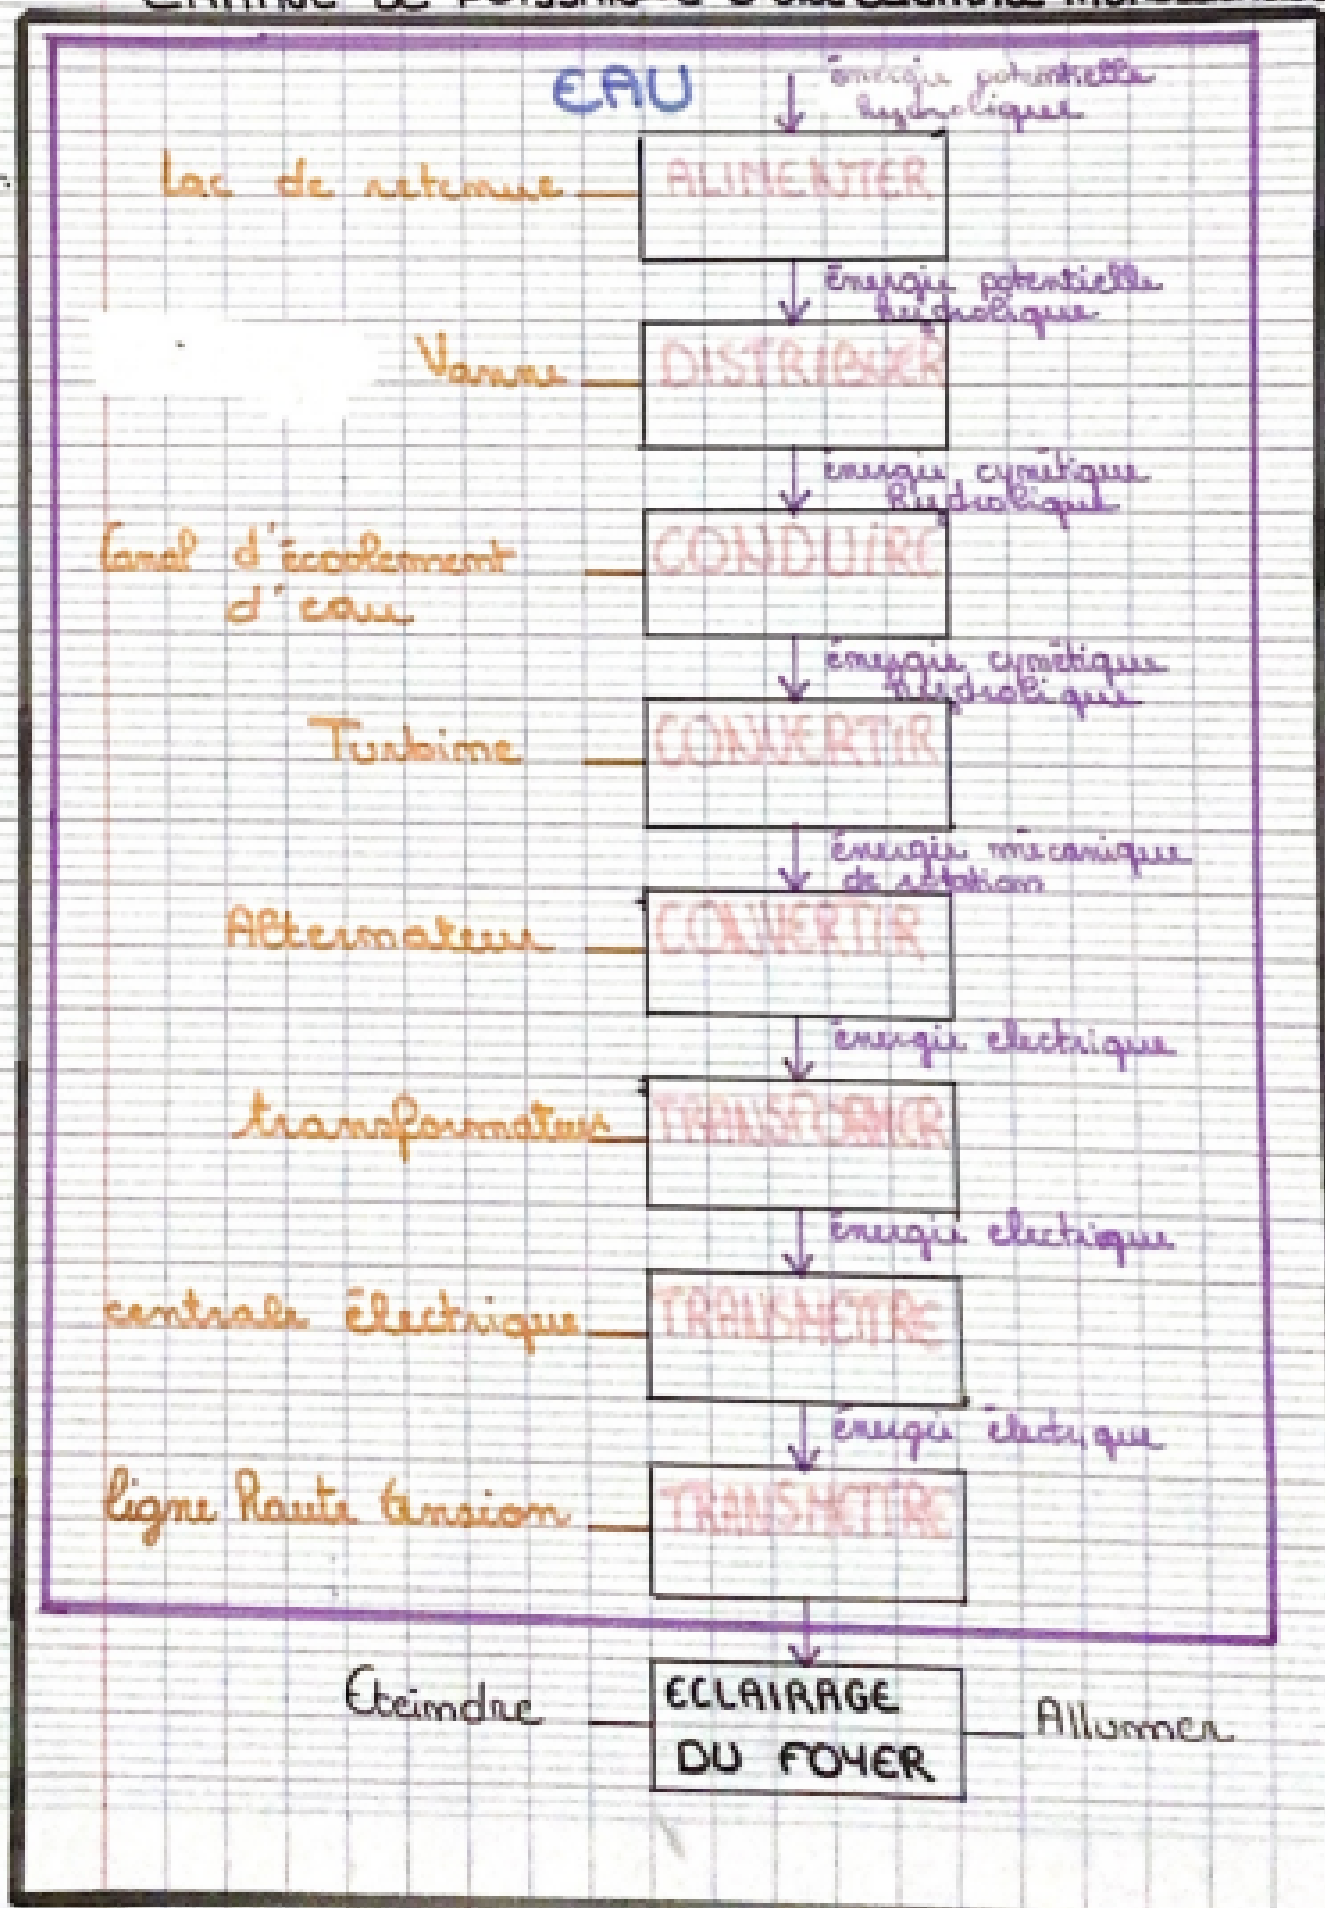 EAU
énergie potentielle
hydrolique
Lac de retenue
ALIMENTER
énergie potentielle
hydrolique
Vanne
DISTRIBUER
énergie cynétique
hydrolique
Canal d'écoolement
d'eau
CONDUIRE
énergie cynétique
hydrolique
Turbine
CONVERTIR
énergie mécanique
de rotation
Alternateur
CONVERTIR
énergie electrique
transformateur
TRANSFORMER
énergie electrique
centrale électrique
TRANSMETTRE
énergie électrique
ligne haute tension
TRANSMETTRE
Eteindre
ECLAIRAGE
DU FOYER
Allumer